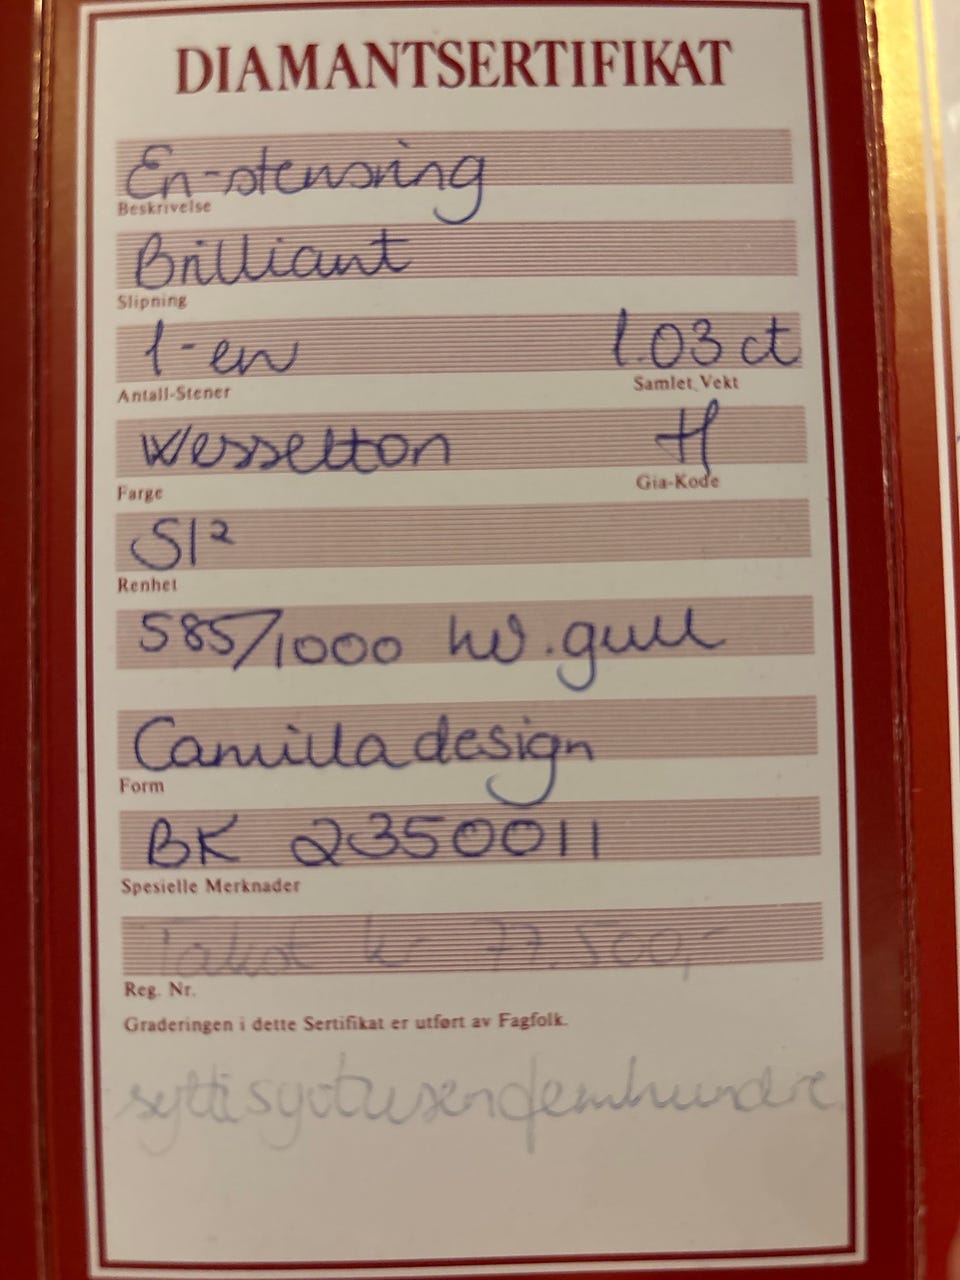 DIAMANTSERTIFIKAT
En-stensring
Beskrivelse
Brilliant
Slipning
1-en 1.03 ct
Antall-Stener Samlet Vekt
Wesselton H
Farge Gia-Kode
SI²
Renhet
585/1000 hv.gull
Camilla design
Form
BK 2350011
Spesielle Merknader
Takst kr 77.500,-
Reg. Nr.
Graderingen i dette Sertifikat er utført av Fagfolk.
syttisyvtusenfemhundre